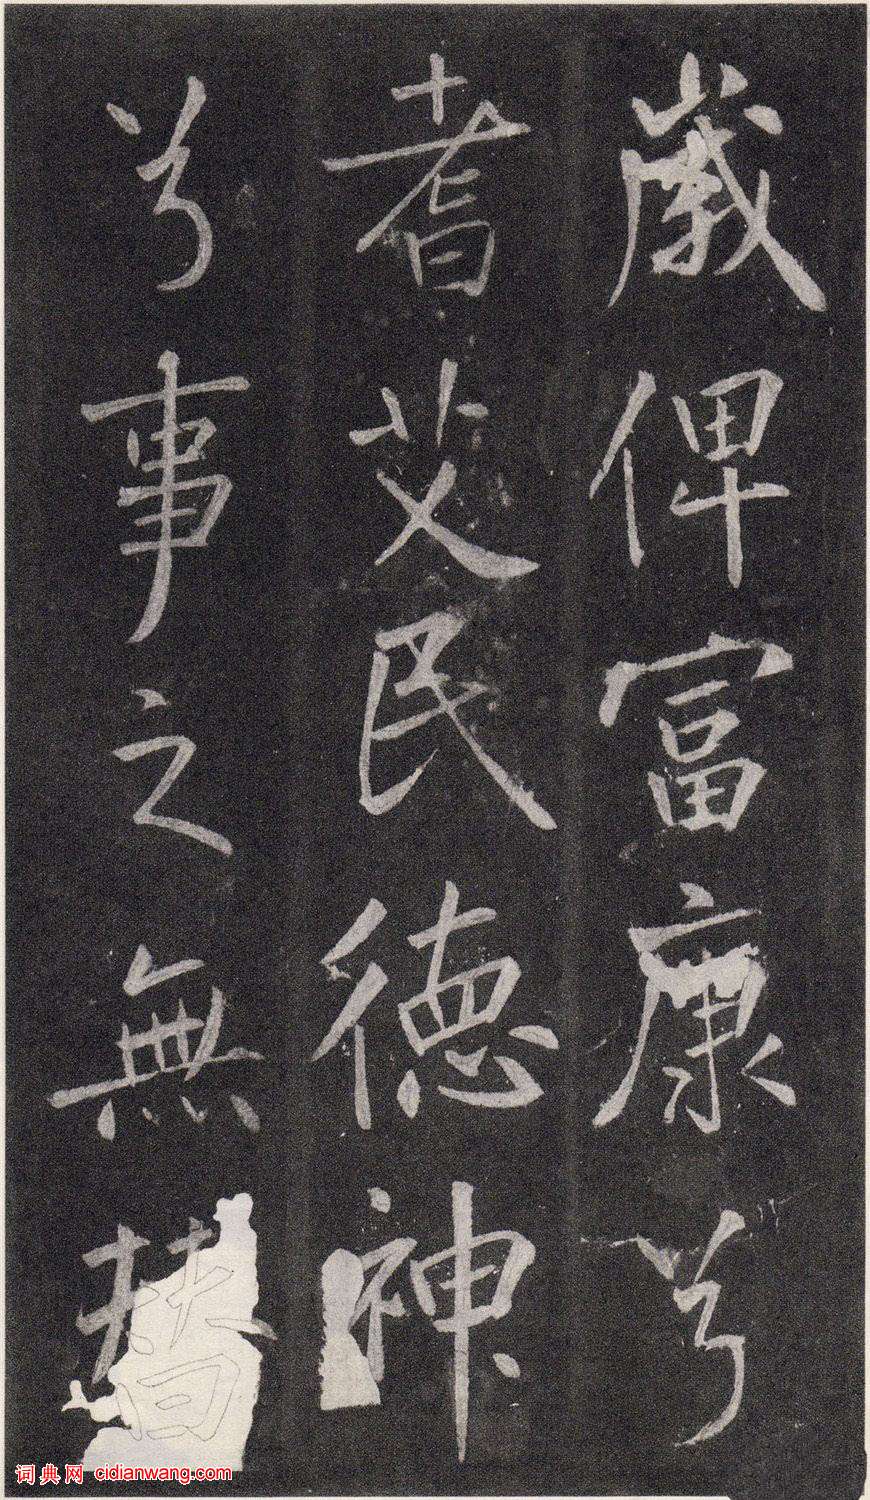 歲俾富康兮
耆艾民德神
兮事之無替
词典网 cidianwang.com